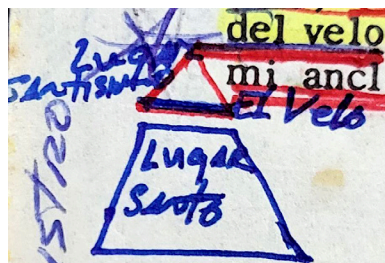 del velo
mi ancl
Lugar
Santisimo
El Velo
Lugar
Santo